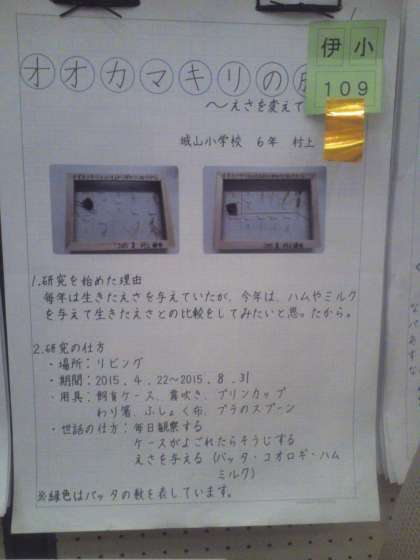 伊小
109
オオカマキリの
〜えさを変えて
城山小学校 6年 村上
1.研究を始めた理由
毎年は生きたえさを与えていたが、今年は、ハムやミルク
を与えて生きたえさとの比較をしてみたいと思ったから。
2.研究の仕方
・場所:リビング
・期間:2015.4.22〜2015.8.31
・用具:飼育ケース、霧吹き、プリンカップ
わり箸、ふしょく布、プラのスプーン
・世話の仕方:毎日観察する
ケースがよごれたらそうじする
えさを与える(バッタ・コオロギ・ハム
ミルク)
※緑色はバッタの数を表しています。